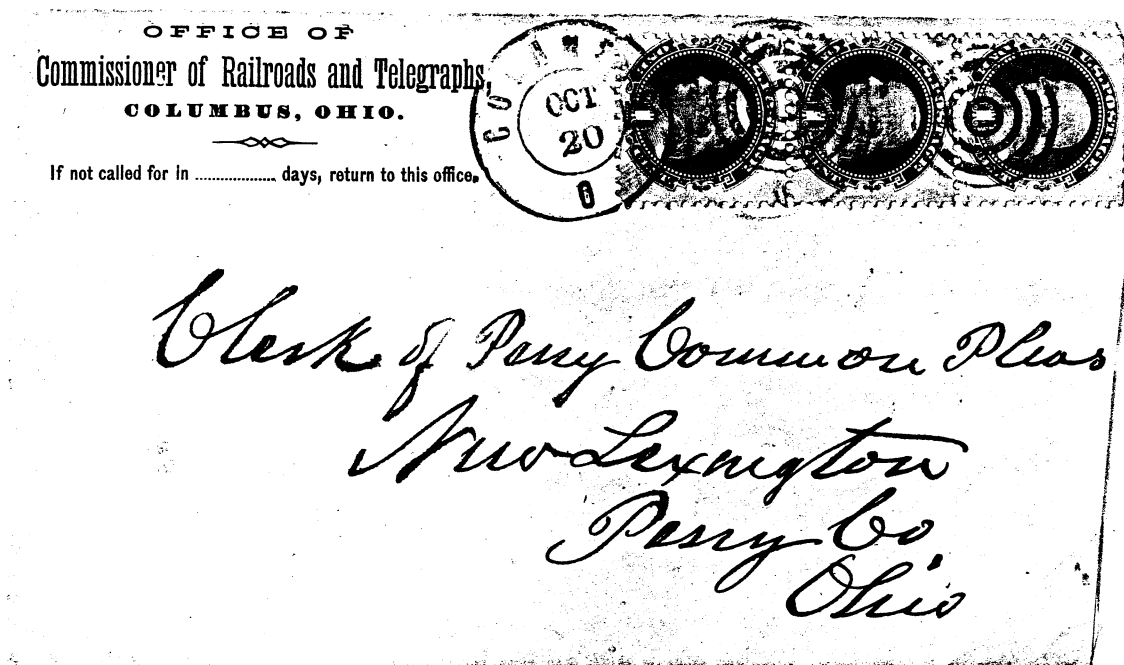 OFFICE OF
Commissioner of Railroads and Telegraphs,
COLUMBUS, OHIO.
If not called for in .................... days, return to this office.
OCT
20
O
Clerk of Perry Common Pleas
New Lexington
Perry Co.
Ohio